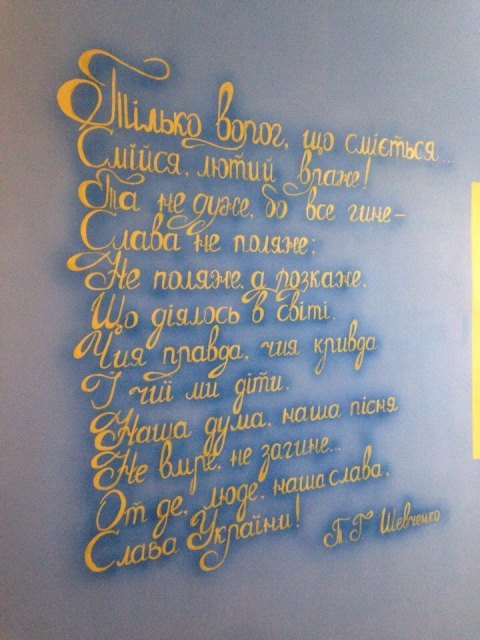 Тілько ворог, що сміється...
Смійся, лютий враже!
Та не дуже, бо все гине—
Слава не поляже;
Не поляже, а розкаже,
Що діялось в світі,
Чия правда, чия кривда
І чиї ми діти.
Наша дума, наша пісня
Не вмре, не загине...
От де, люде, наша слава,
Слава України!
Т. Г Шевченко